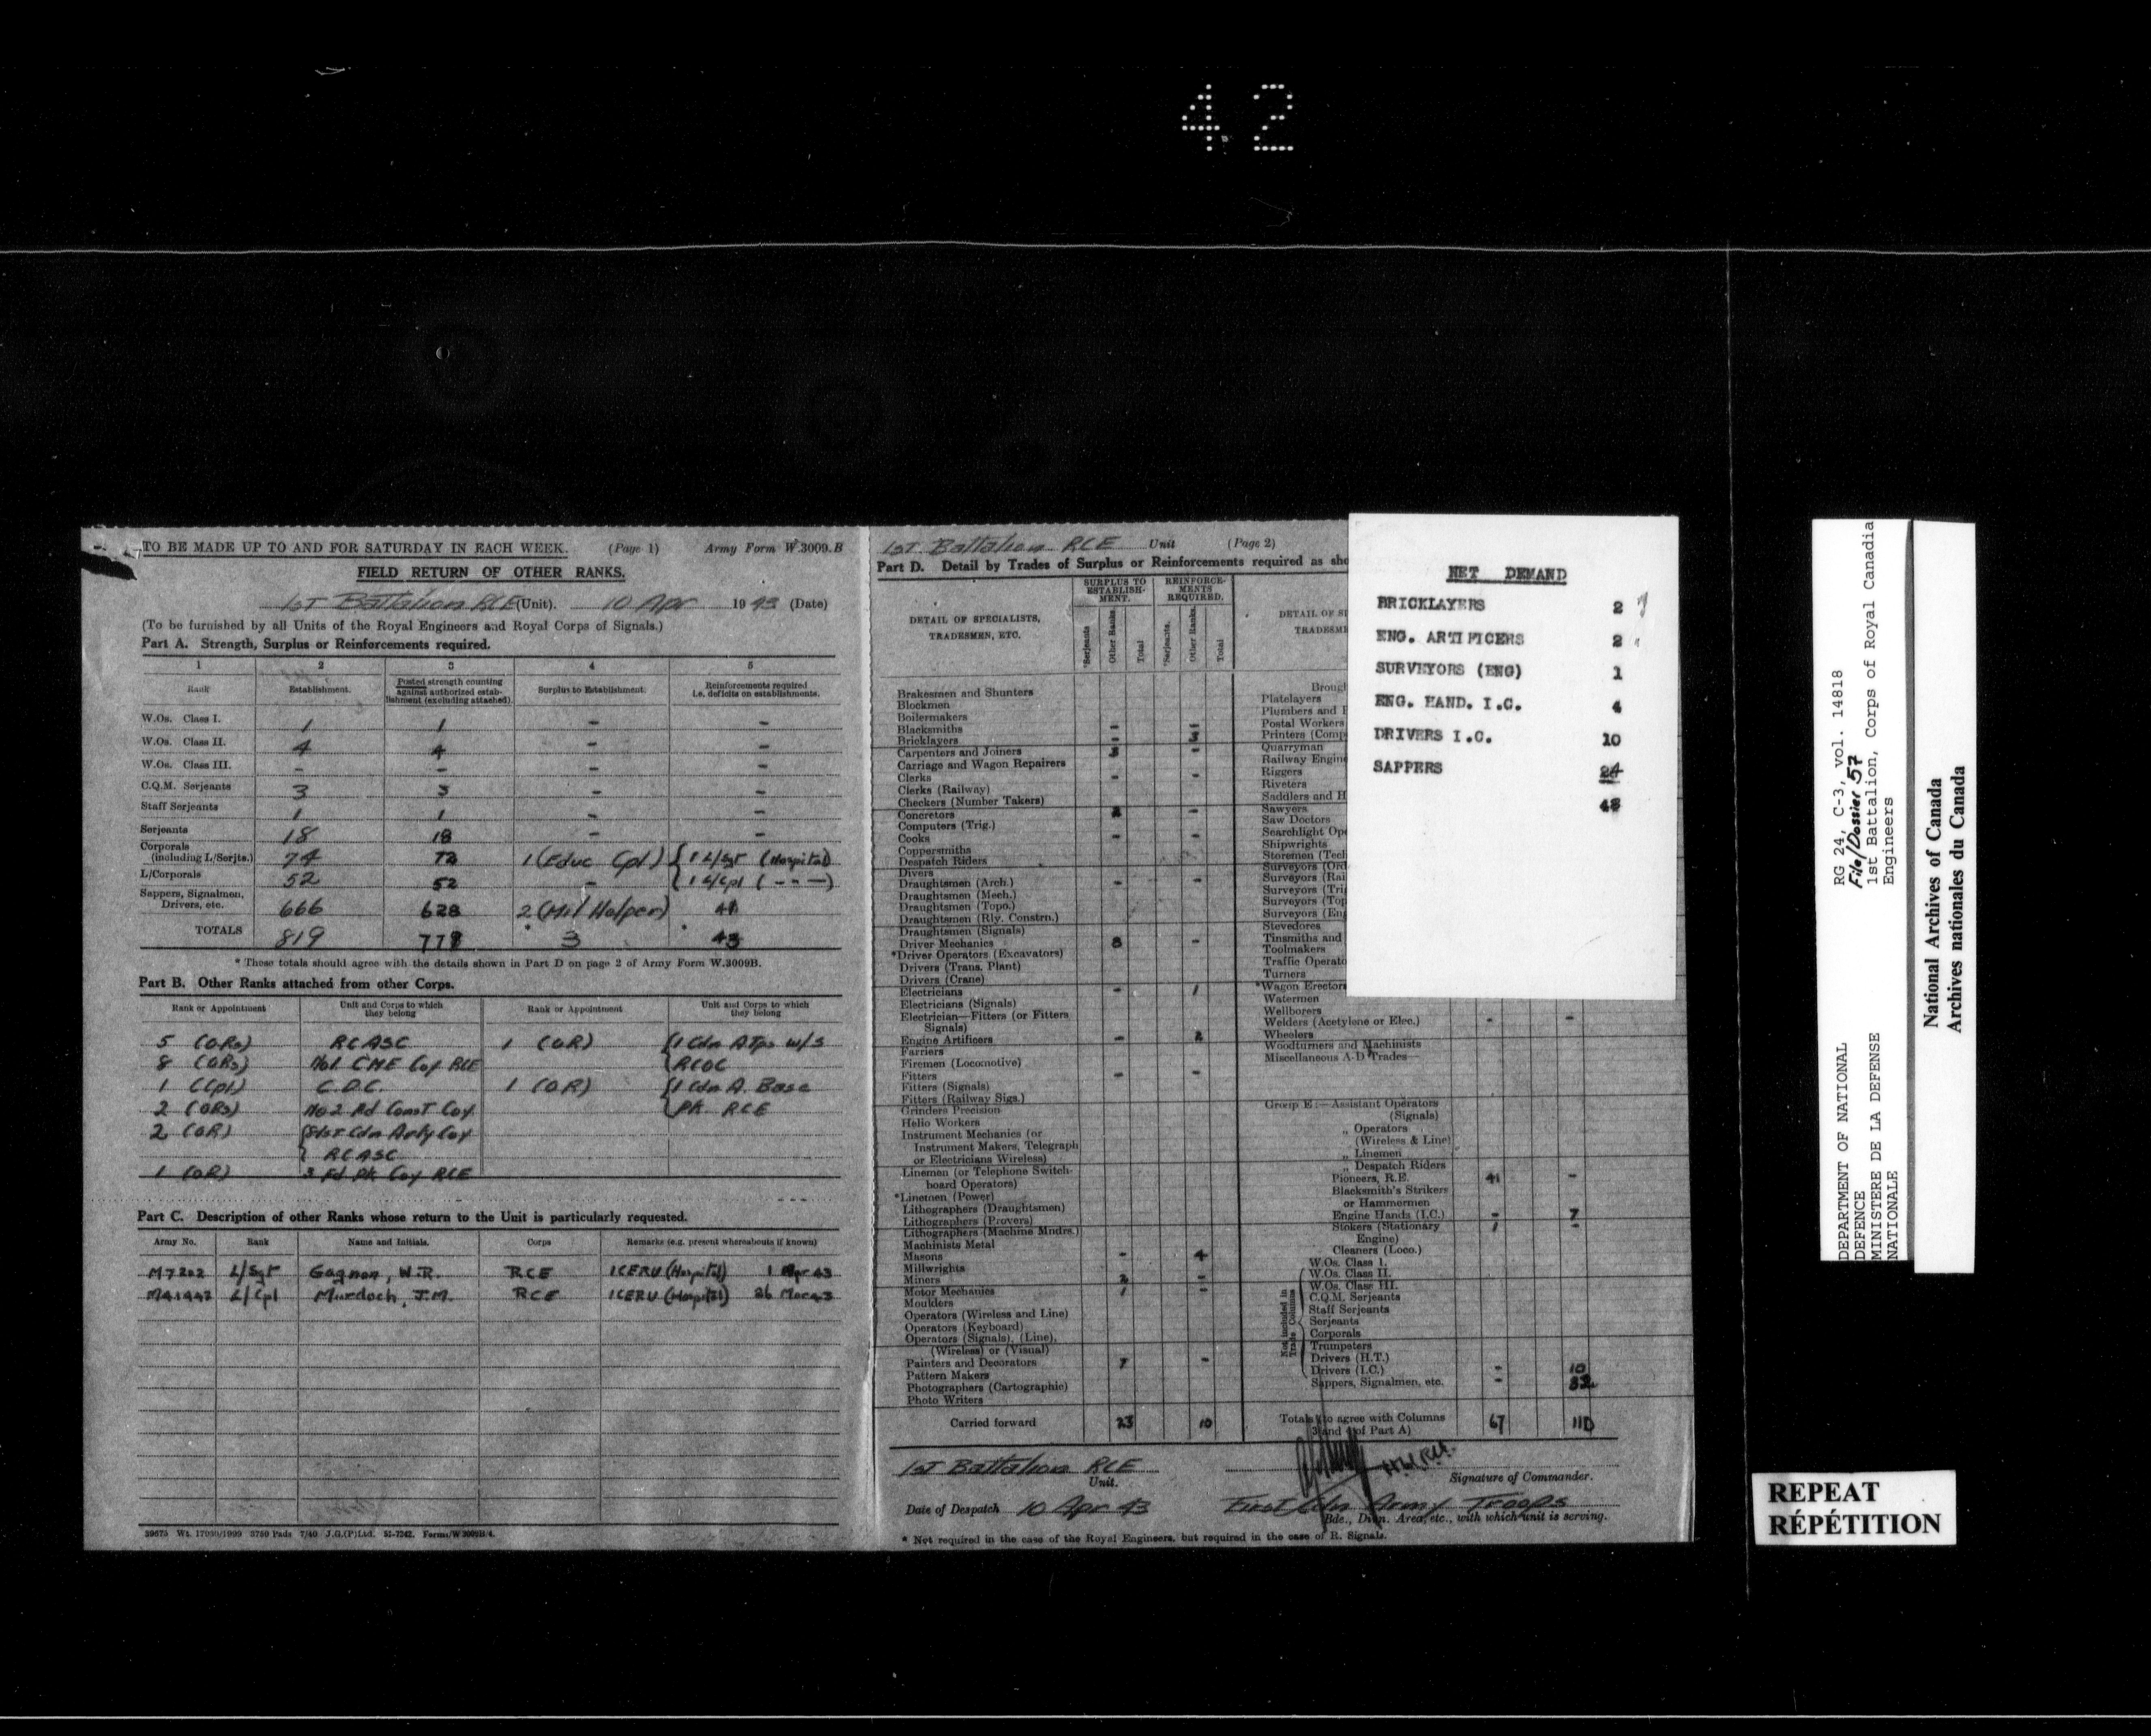 42
TO BE MADE UP TO AND FOR SATURDAY IN EACH WEEK. (Page 1) Army Form W.3009.B
FIELD RETURN OF OTHER RANKS.
1st Battalion RCE (Unit). 10 Apr 1943 (Date)
(To be furnished by all Units of the Royal Engineers and Royal Corps of Signals.)
Part A. Strength, Surplus or Reinforcements required.
1 2 3 4 5
Rank Establishment. Posted strength counting against authorized establishment (excluding attached). Surplus to Establishment. Reinforcements required i.e. deficits on establishments.
W.Os. Class I. 1 1 - -
W.Os. Class II. 4 4 - -
W.Os. Class III. - - - -
C.Q.M. Serjeants 3 3 - -
Staff Serjeants 1 1 - -
Serjeants 18 18 - -
Corporals (including L/Serjts.) 74 72 1 (Educ Cpl) { 1 L/Sgt (Hospital)
L/Corporals 52 52 - { 1 L/Cpl ( - - - )
Sappers, Signalmen, Drivers, etc. 666 628 2 (Mil Helper) 41
TOTALS 819 3 43
* These totals should agree with the details shown in Part D on page 2 of Army Form W.3009B.
Part B. Other Ranks attached from other Corps.
Rank or Appointment Unit and Corps to which they belong Rank or Appointment Unit and Corps to which they belong
5 (ORs) RCASC 1 (OR) {1 Cdn A Tps W/S
8 (ORs) No1 CME Coy RCE {RCOC
1 (Cpl) C.D.C. 1 (OR) {1 Cdn A. Base
2 (ORs) No 2 Rd Const Coy. {Pk RCE
2 (OR) {81st Cdn Arty Coy
{ RCASC
1 (OR) 3 Fd Pk Coy RCE
Part C. Description of other Ranks whose return to the Unit is particularly requested.
Army No. Rank Name and Initials. Corps Remarks (e.g. present whereabouts if known)
M7202 L/Sgt Gagnon, W.R. RCE 1CERU (Hospital) 1 Apr 43
L/Cpl Murdoch, J.M. RCE 1CERU (Hospital) 26 Mar 43
1st Battalion RCE Unit (Page 2)
Part D. Detail by Trades of Surplus or Reinforcements required as sho
DETAIL OF SPECIALISTS, TRADESMEN, ETC.
SURPLUS TO ESTABLISHMENT. REINFORCEMENTS REQUIRED.
*Serjeants Other Ranks Total *Serjeants. Other Ranks. Total
Brakesmen and Shunters
Blockmen
Boilermakers
Blacksmiths - -
Bricklayers - 3
Carpenters and Joiners 3 -
Carriage and Wagon Repairers
Clerks - -
Clerks (Railway)
Checkers (Number Takers)
Concretors 2 -
Computers (Trig.)
Cooks - -
Coppersmiths
Despatch Riders
Divers
Draughtsmen (Arch.) - -
Draughtsmen (Mech.)
Draughtsmen (Topo.)
Draughtsmen (Rly. Constrn.)
Draughtsmen (Signals)
Driver Mechanics 8 -
*Driver Operators (Excavators)
Drivers (Trans. Plant)
Drivers (Crane)
Electricians - 1
Electricians (Signals)
Electrician—Fitters (or Fitters Signals)
Engine Artificers - 2
Farriers
Firemen (Locomotive)
Fitters - -
Fitters (Signals)
Fitters (Railway Sigs.)
Grinders Precision
Helio Workers
Instrument Mechanics (or
Instrument Makers, Telegraph
or Electricians Wireless)
Linemen (or Telephone Switch-
board Operators)
*Linemen (Power)
Lithographers (Draughtsmen)
Lithographers (Provers)
Lithographers (Machine Mndrs.)
Machinists Metal
Masons - 4
Millwrights
Miners 2 -
Motor Mechanics 1 -
Moulders
Operators (Wireless and Line)
Operators (Keyboard)
Operators (Signals), (Line),
(Wireless) or (Visual)
Painters and Decorators 7 -
Pattern Makers
Photographers (Cartographic)
Photo Writers
Carried forward 23 10
DETAIL OF SP
TRADESME
Brough
Platelayers
Plumbers and
Postal Workers
Printers (Comp
Quarryman
Railway Engine
Riggers
Riveters
Saddlers and H
Sawyers
Saw Doctors
Searchlight Ope
Shipwrights
Storemen (Tech
Surveyors (Ord
Surveyors (Rai
Surveyors (Trig
Surveyors (Top
Surveyors (Eng
Stevedores
Tinsmiths and
Toolmakers
Traffic Operato
Turners
*Wagon Erectors
Watermen
Wellborers
Welders (Acetylene or Elec.) - -
Wheelers
Woodturners and Machinists
Miscellaneous A-D Trades—
Group E:—Assistant Operators
(Signals)
„ Operators
(Wireless & Line)
„ Linemen
„ Despatch Riders
Pioneers, R.E. 41 -
Blacksmith's Strikers
or Hammermen
Engine Hands (I.C.) - 7
Stokers (Stationary Engine) 1 -
Cleaners (Loco.)
Not included in Trade Columns
W.Os. Class I.
W.Os. Class II.
W.Os. Class III.
C.Q.M. Serjeants
Staff Serjeants
Serjeants
Corporals
Trumpeters
Drivers (H.T.)
Drivers (I.C.) - 10
Sappers, Signalmen, etc. - 82
Totals (to agree with Columns 3 and 4 of Part A) 67 110
1st Battalion RCE
Unit.
Signature of Commander.
Date of Despatch 10 Apr 43 First Cdn Army Troops
Bde., Divn. Area, etc., with which unit is serving.
* Not required in the case of the Royal Engineers, but required in the case of R. Signals.
NET DEMAND
BRICKLAYERS 2
ENG. ARTIFICERS 2
SURVEYORS (ENG) 1
ENG. HAND. I.C. 4
DRIVERS I.C. 10
SAPPERS 24
48
RG 24, C-3, vol. 14818
File/Dossier 57
1st Battalion, Corps of Royal Canadia
Engineers
DEPARTMENT OF NATIONAL
DEFENCE
MINISTERE DE LA DEFENSE
NATIONALE
National Archives of Canada
Archives nationales du Canada
REPEAT
RÉPÉTITION